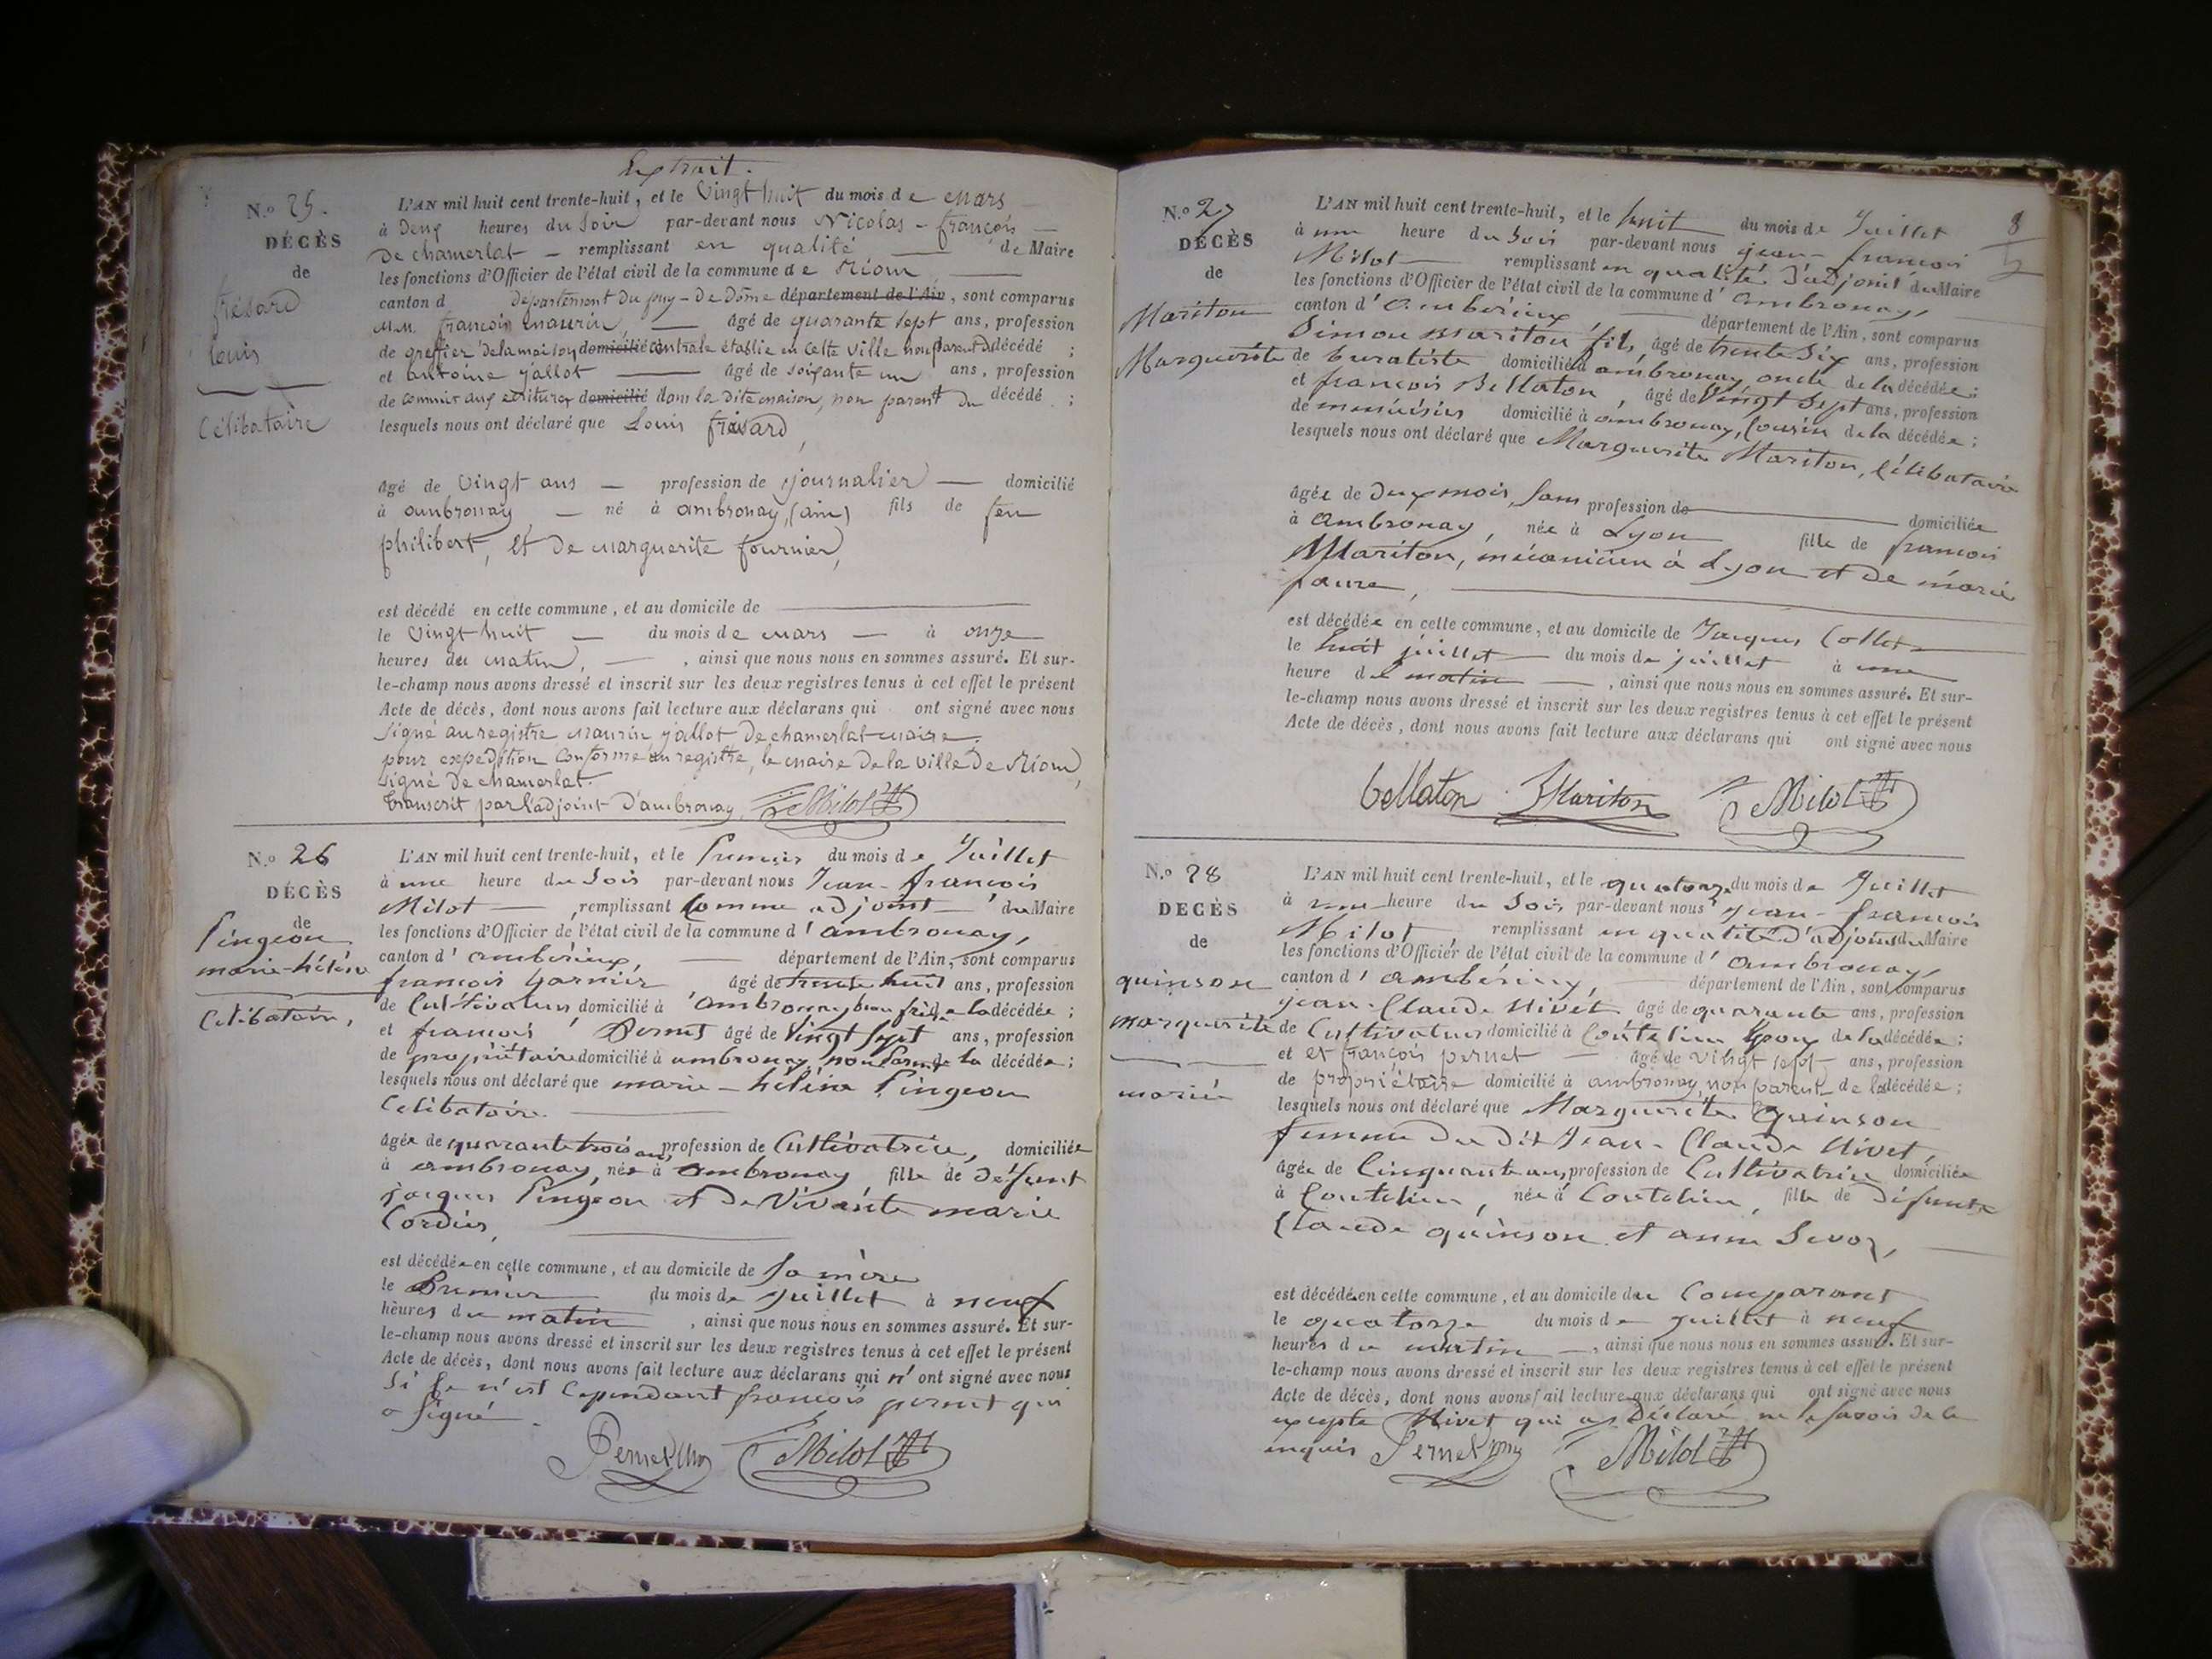 Extrait.
N.o 25.
DÉCÈS
de
frésard
louis
Célibataire
L'AN mil huit cent trente-huit, et le vingt huit du mois de mars
à deux heures du soir par-devant nous Nicolas-françois
De chamerlat remplissant en qualité de Maire
les fonctions d'Officier de l'état civil de la commune de Riom
canton d département du puy-De Dôme département de l'Ain, sont comparus
MM. françois maurin, âgé de quarante sept ans, profession
de greffier delamaison domicilié centrale établie en cette ville non parent du décédé ;
et antoine jallot âgé de soixante un ans, profession
de commis aux ecritures domicilié dans la dite maison, non parent du décédé ;
lesquels nous ont déclaré que Louis frésard,
âgé de vingt ans profession de journalier domicilié
à ambronay né à ambronay, (ain) fils de feu
philibert, et de marguerite fournier,
est décédé en cette commune, et au domicile de
le vingt huit du mois de mars à onze
heures du matin, , ainsi que nous nous en sommes assuré. Et sur-
le-champ nous avons dressé et inscrit sur les deux registres tenus à cet effet le présent
Acte de décès, dont nous avons fait lecture aux déclarans qui ont signé avec nous
Signé au registre maurin jallot De chamerlat maire.
pour expedition conforme au registre, le maire De la ville De Riom,
signé De chamerlat.
Transcrit par l'adjoint d'ambronay Milot
N.o 26
DÉCÈS
de
Pingeon
marie-héléne
Célibataire,
L'AN mil huit cent trente-huit, et le Premier du mois de Juillet
à une heure du soir par-devant nous Jean-françois
Milot , remplissant comme adjoint du Maire
les fonctions d'Officier de l'état civil de la commune d'ambronay,
canton d'ambérieux, département de l'Ain, sont comparus
françois garnier âgé de trente huit ans, profession
de Cultivateur domicilié à ambronay beau frère de la décédée ;
et françois Pernet âgé de vingt sept ans, profession
de propriétaire domicilié à ambronay non parent de la décédée ;
lesquels nous ont déclaré que marie-héléne Pingeon
Celibataire.
âgée de quarante trois ans, profession de Cultivatrice, domiciliée
à ambronay, née à ambronay fille de défunt
jacques Pingeon et de Vivante marie
Cordier,
est décédée en cette commune, et au domicile de sa mère
le Premier du mois de juillet à neuf
heures du matin , ainsi que nous nous en sommes assuré. Et sur-
le-champ nous avons dressé et inscrit sur les deux registres tenus à cet effet le présent
Acte de décès, dont nous avons fait lecture aux déclarans qui n'ont signé avec nous
si ce n'est cependant françois pernet qui
a signé.
Pernet Milot
8
N.o 27
DÉCÈS
de
Mariton
Marguerite
L'AN mil huit cent trente-huit, et le huit du mois de Juillet
à une heure du soir par-devant nous jean-françois
Milot remplissant en qualité d'adjoint du Maire
les fonctions d'Officier de l'état civil de la commune d'ambronay,
canton d'ambérieux département de l'Ain, sont comparus
Simon Mariton fils, âgé de trente six ans, profession
de buratiste domicilié à ambronay oncle de la décédée ;
et françois Bellaton, âgé de vingt sept ans, profession
de menuisier domicilié à ambronay, Cousin de la décédée ;
lesquels nous ont déclaré que Marguerite Mariton, Célibataire
âgée de deux mois, sans profession de domiciliée
à Ambronay, née à Lyon fille de françois
Mariton, mécanicien à Lyon et de marie
faure,
est décédée en cette commune, et au domicile de Jacques Collet
le huit juillet du mois de juillet à une
heure de matin , ainsi que nous nous en sommes assuré. Et sur-
le-champ nous avons dressé et inscrit sur les deux registres tenus à cet effet le présent
Acte de décès, dont nous avons fait lecture aux déclarans qui ont signé avec nous
bellaton Mariton Milot
N.o 28
DÉCÈS
de
quinson
marguerite
mariée
L'AN mil huit cent trente-huit, et le quatorze du mois de Juillet
à une heure du soir, par-devant nous jean-françois
Milot remplissant en qualité d'adjoint du Maire
les fonctions d'Officier de l'état civil de la commune d'ambronay,
canton d'ambérieux, département de l'Ain, sont comparus
jean-Claude Nivet âgé de quarante ans, profession
de Cultivateur domicilié à Coutelieu Epoux de la décédée ;
et et françois pernet âgé de vingt sept ans, profession
de propriétaire domicilié à ambronay, non parent de la décédée ;
lesquels nous ont déclaré que Marguerite Quinson
femme du dit Jean-Claude Nivet,
âgée de Cinquante ans, profession de Cultivatrice domiciliée
à Coutelieu, née à Coutelieu, fille de défunts
Claude quinson et anne
est décédée en cette commune, et au domicile du Comparant
le quatorze du mois de juillet à neuf
heures du matin , ainsi que nous nous en sommes assuré. Et sur-
le-champ nous avons dressé et inscrit sur les deux registres tenus à cet effet le présent
Acte de décès, dont nous avons fait lecture aux déclarans qui ont signé avec nous
excepte Nivet qui a déclaré ne le savoir de ce
enquis Pernet Milot